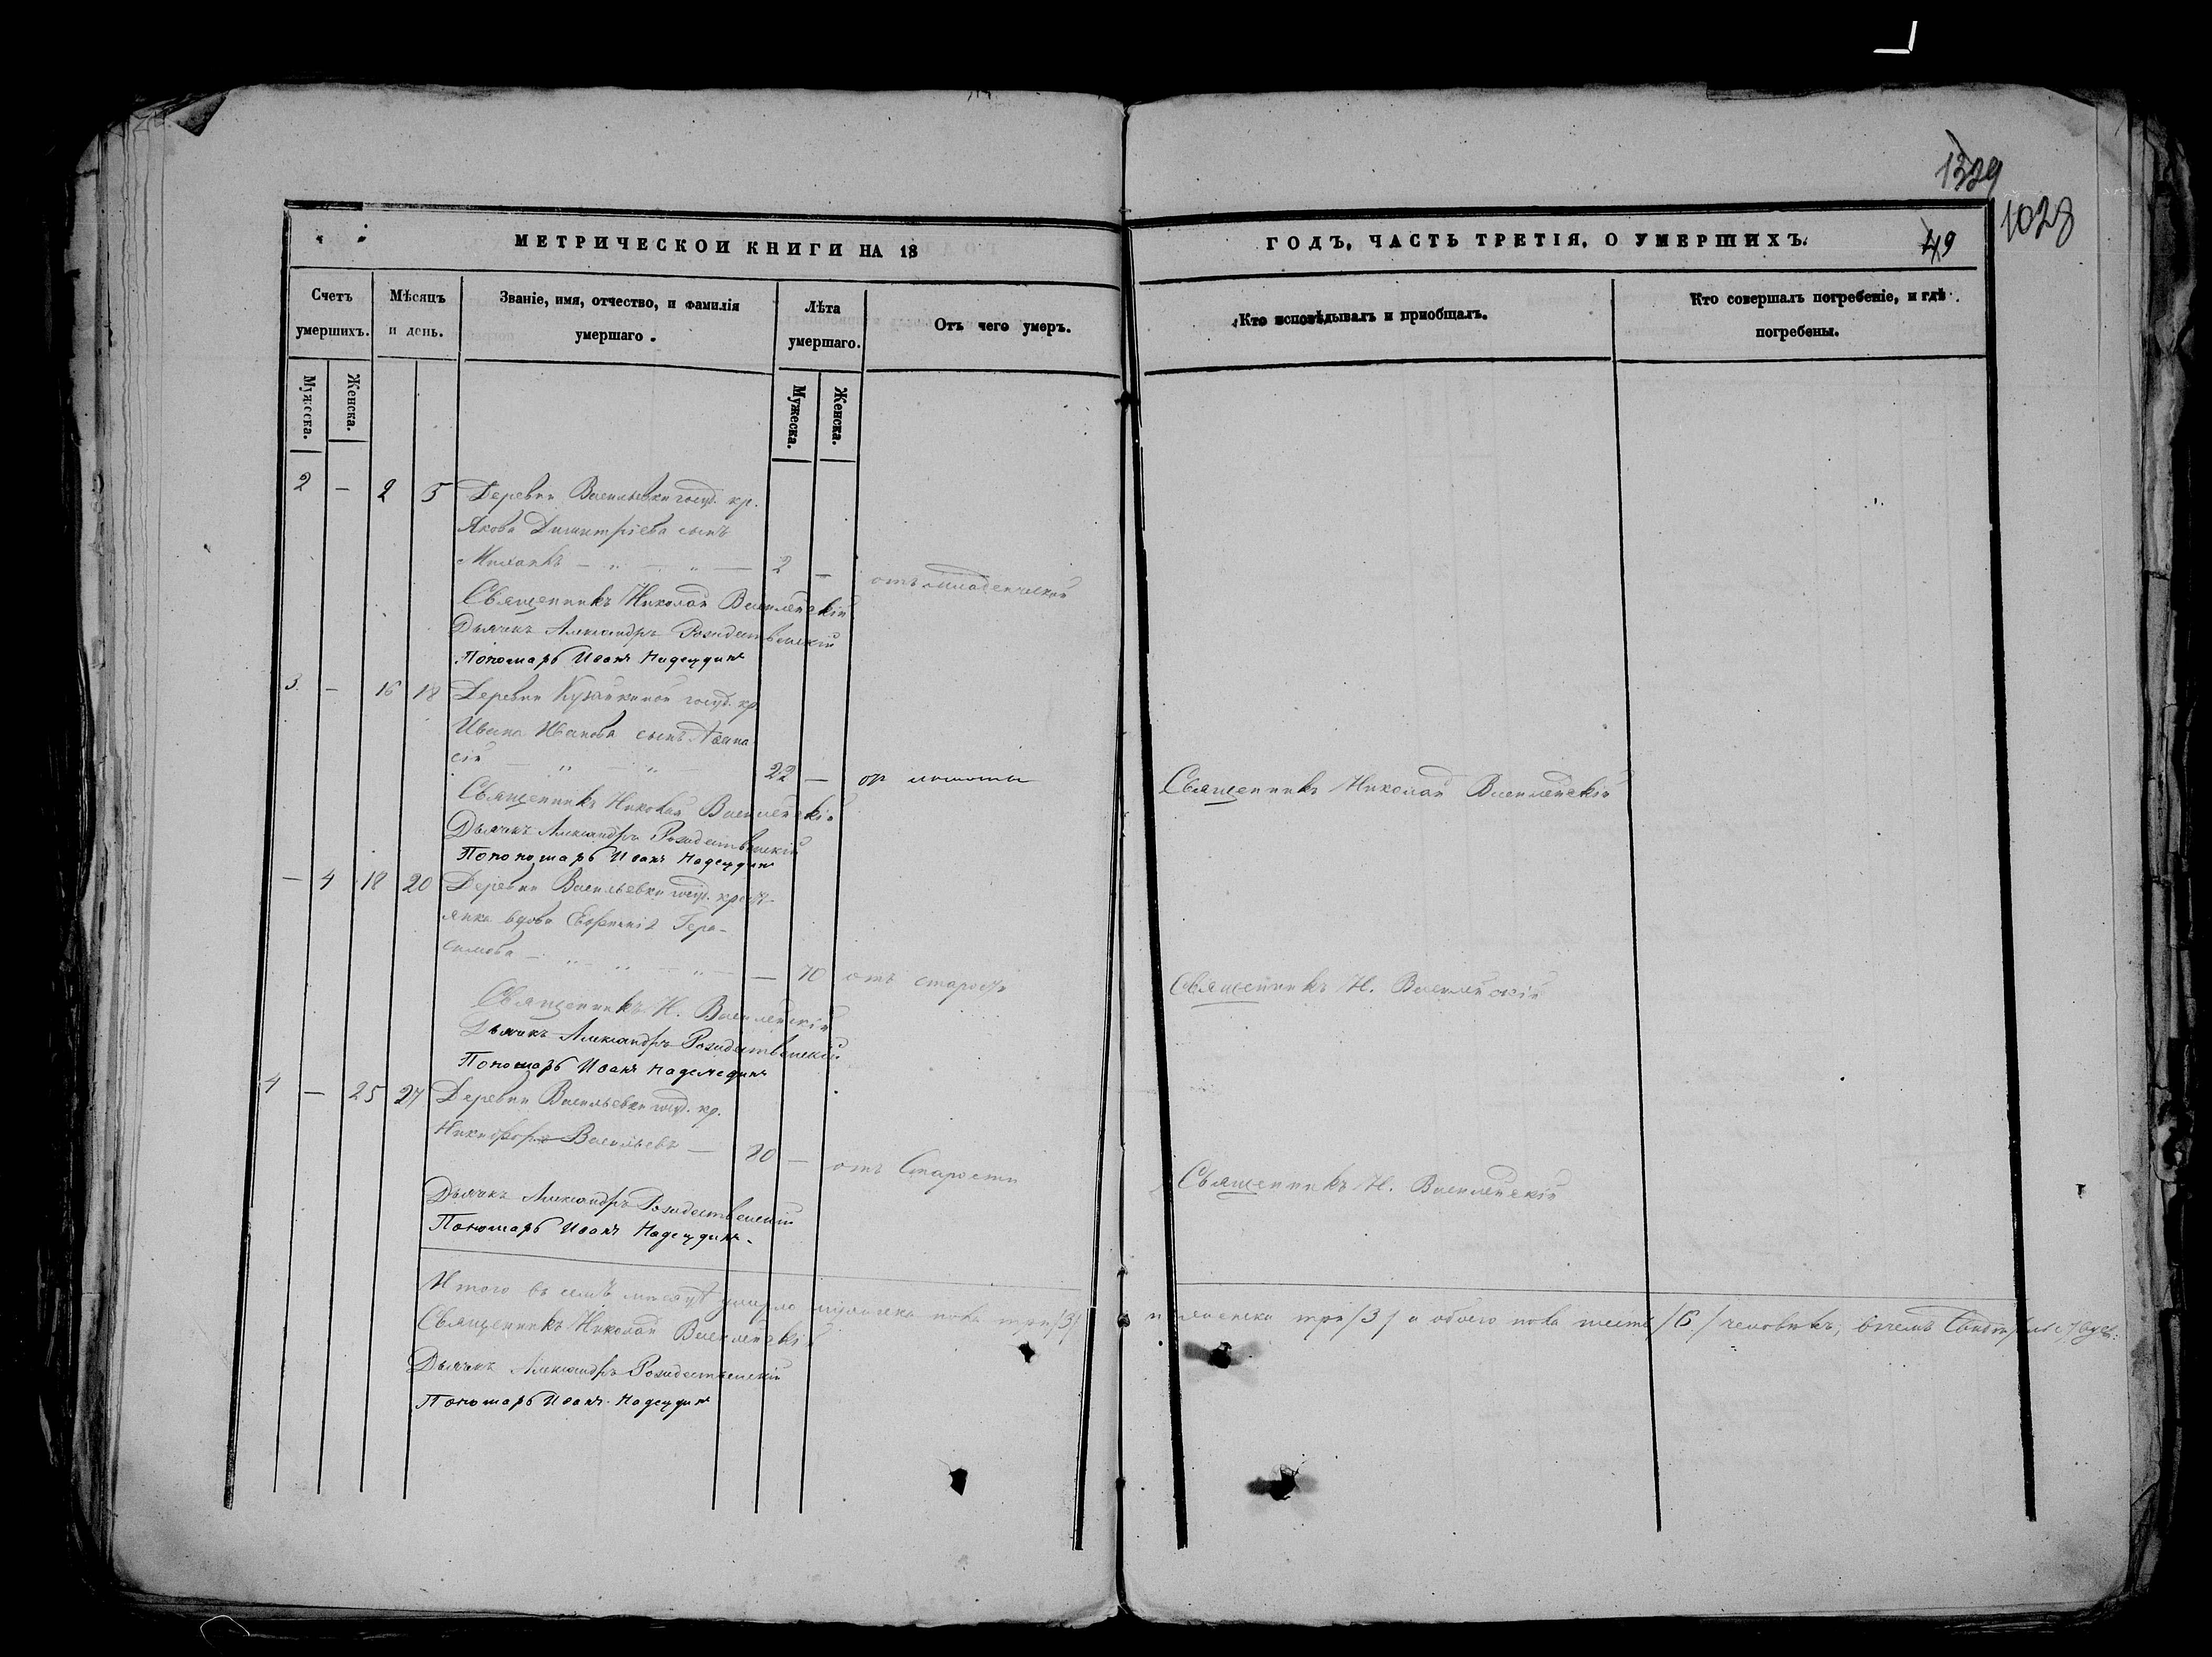 1329
1028
МЕТРИЧЕСКОЙ КНИГИ НА 18
ГОДЪ, ЧАСТЬ ТРЕТІЯ, О УМЕРШИХЪ.
49
Счетъ умершихъ.
Мужеска.
Женска.
Мѣсяцъ и день.
Званіе, имя, отчество, и фамилія умершаго.
Лѣта умершаго.
Мужеска.
Женска.
Отъ чего умеръ.
Кто исповѣдывалъ и приобщалъ.
Кто совершалъ погребеніе, и гдѣ погребены.
2 — 2 5 Деревни Васильевки госуд. кр.
Якова Димитріева сынъ
Михаилъ — „ — „ — 2 — отъ младенческой
Священникъ Николай
Дьячекъ Александръ Рождественскій
Пономарь Иванъ Надеждинъ
3 — 16 18 Деревни госуд. кр.
Ивана Иванова сынъ Аѳана
сій — „ — „ — 22 — от
Священникъ Николай
Священникъ Николай
Дьячекъ Александръ Рождественскій
Пономарь Иванъ Надеждинъ
— 4 18 20 Деревни Васильевки госуд. крест
янка вдова Гера-
симова — „ — „ — „ — — 70 отъ старости
Священникъ Н.
Священникъ Н.
Дьячекъ Александръ Рождественскій
Пономарь Иванъ Надеждинъ
4 — 25 27 Деревни Васильевки госуд. кр.
Никифоръ Васильевъ — — отъ Старости
Священникъ Н.
Дьячекъ Александръ Рождественскій
Пономарь Иванъ Надеждинъ
Итого въ семъ умерло мужеска пола три /3/ и женска три /3/ а обоего пола шесть /6/ человѣкъ, въ чемъ
Священникъ Николай
Дьячекъ Александръ Рождественскій
Пономарь Иванъ Надеждинъ